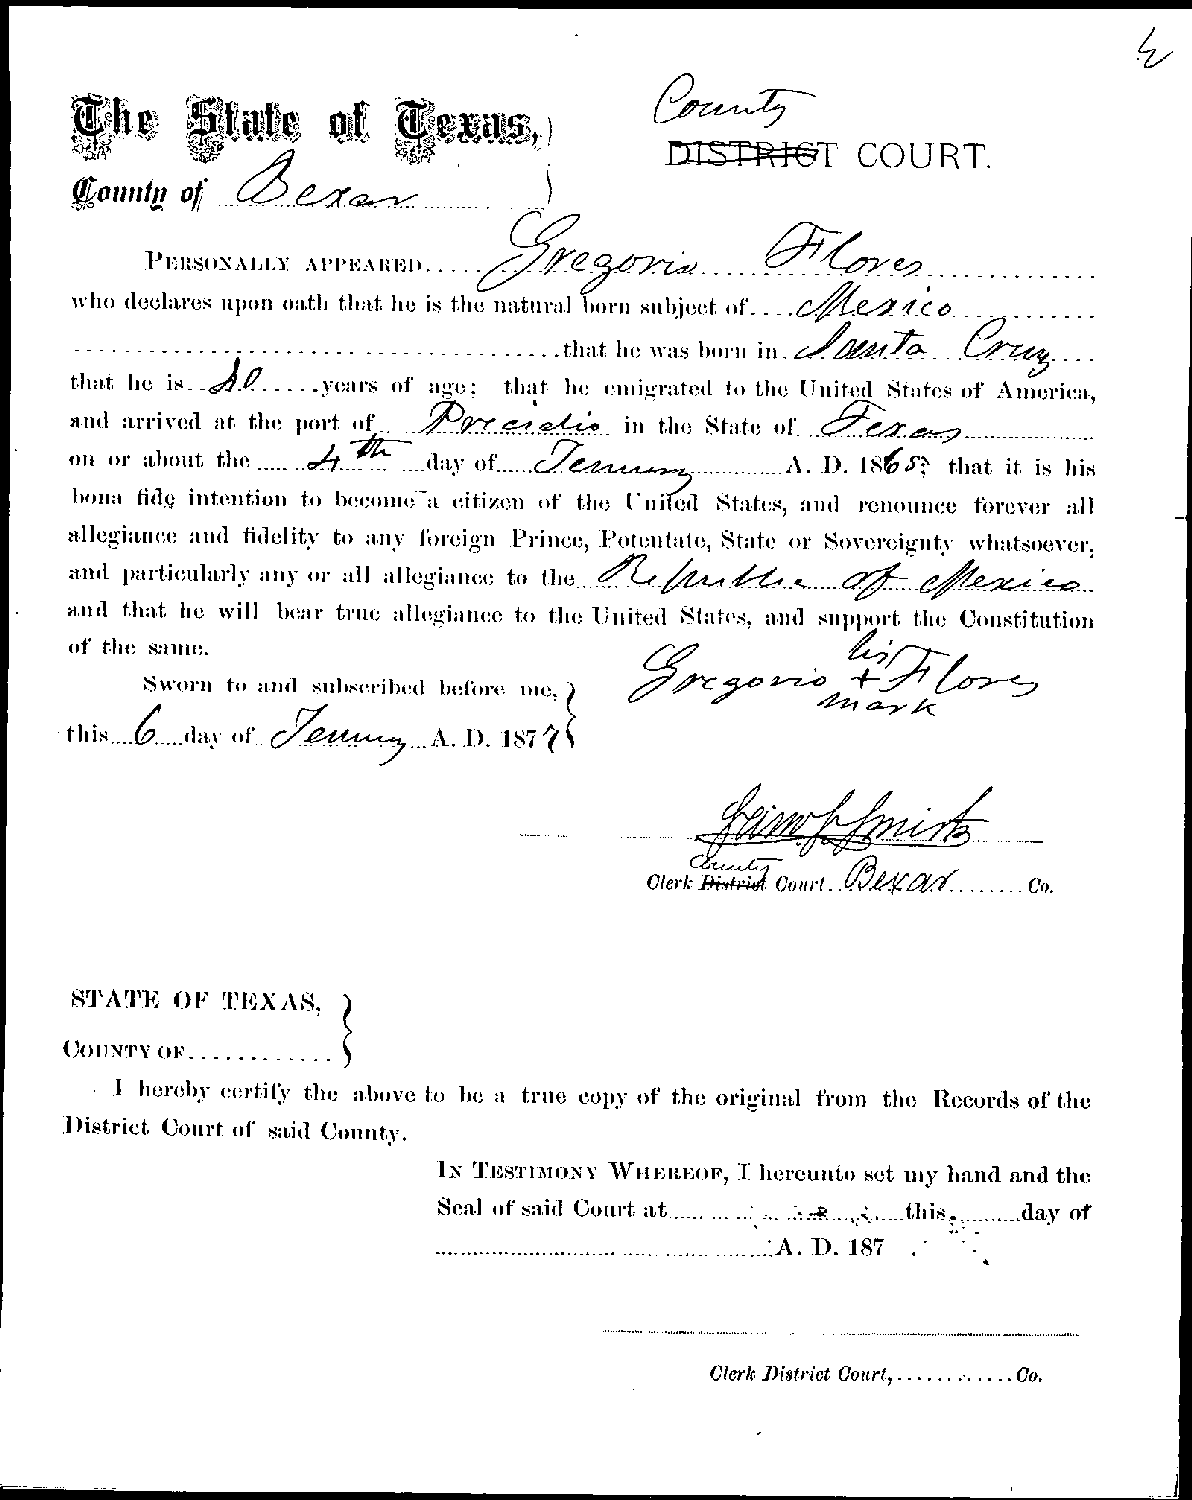 The State of Texas,
County
DISTRICT COURT.
County of Bexar
PERSONALLY APPEARED..... Gregorio Flores
who declares upon oath that he is the natural born subject of.... Mexico
that he was born in Santa Cruz
that he is years of age; that he emigrated to the United States of America,
and arrived at the port of Precidio in the State of Texas
on or about the 4th day of A. D. 1865? that it is his
bona fide intention to become a citizen of the United States, and renounce forever all
allegiance and fidelity to any foreign Prince, Potentate, State or Sovereignty whatsoever,
and particularly any or all allegiance to the Republic of Mexico
and that he will bear true allegiance to the United States, and support the Constitution
of the same.
Gregorio his + mark Flores
Sworn to and subscribed before me,
this 6 day of A. D. 1877
Smith
County
Clerk District Court. Bexar Co.
STATE OF TEXAS,
COUNTY OF............
I hereby certify the above to be a true copy of the original from the Records of the
District Court of said County.
IN TESTIMONY WHEREOF, I hereunto set my hand and the
Seal of said Court at this day of
A. D. 187
Clerk District Court,............Co.